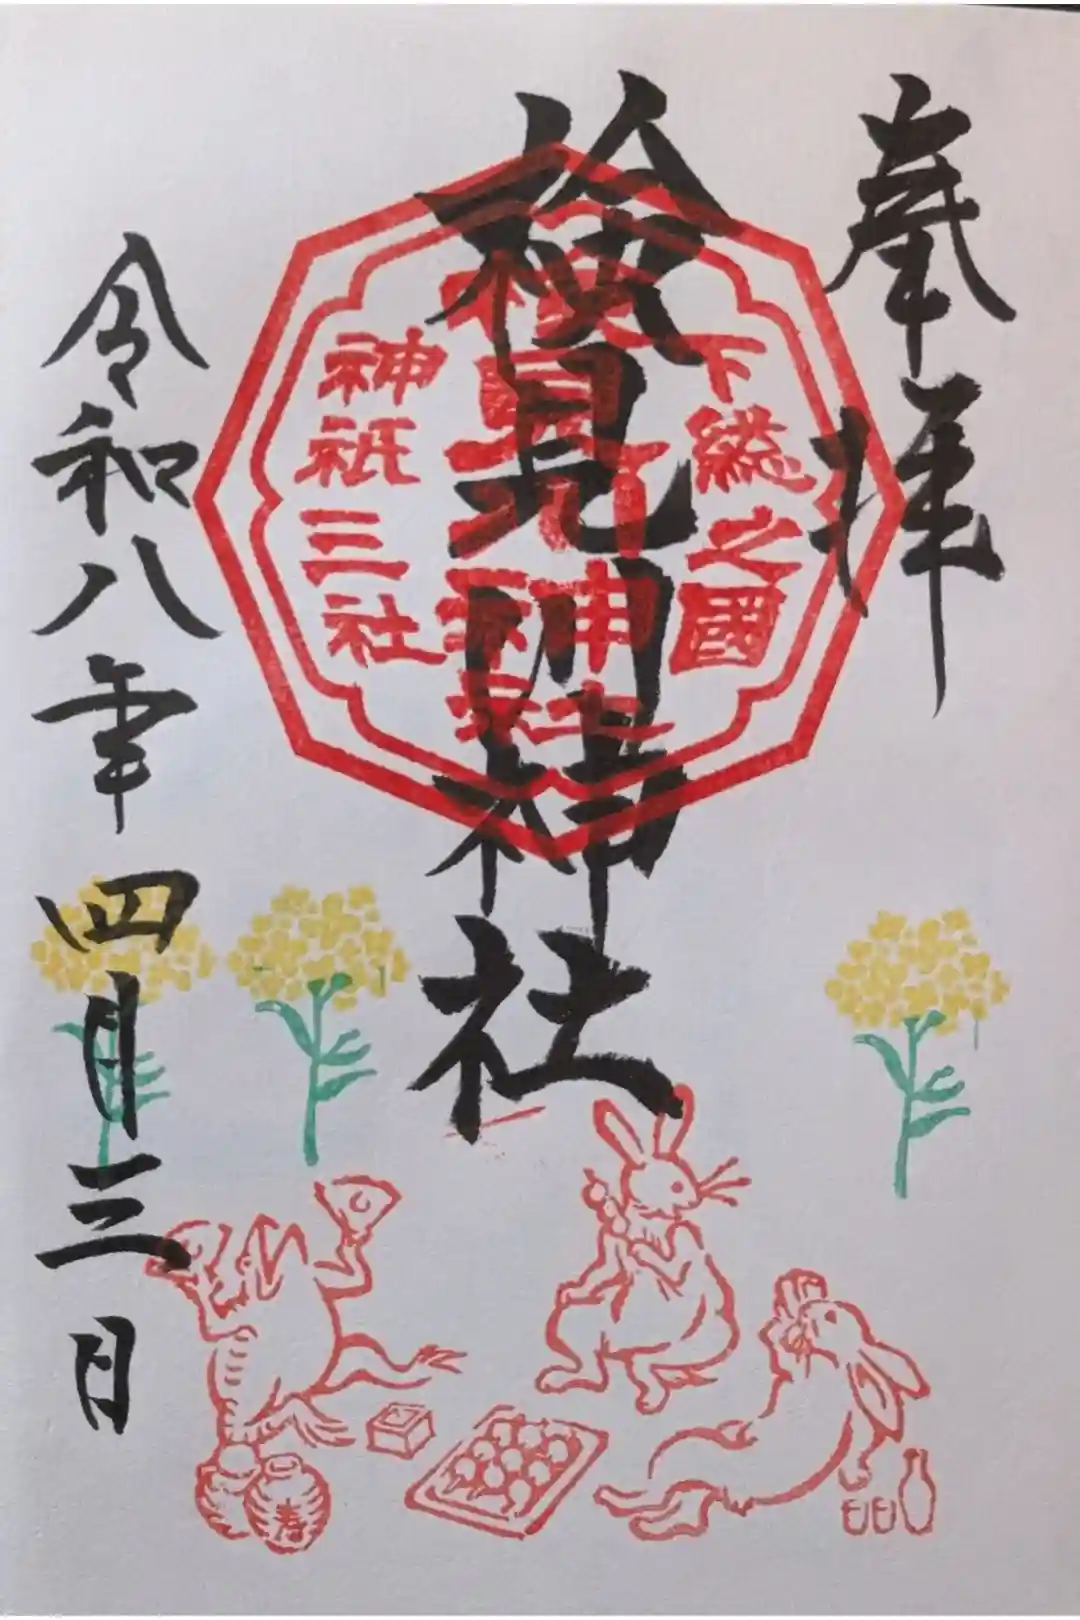 奉拝
下総之國
検見川神社
検見川神社
神祇三社
令和八年四月三日
寿